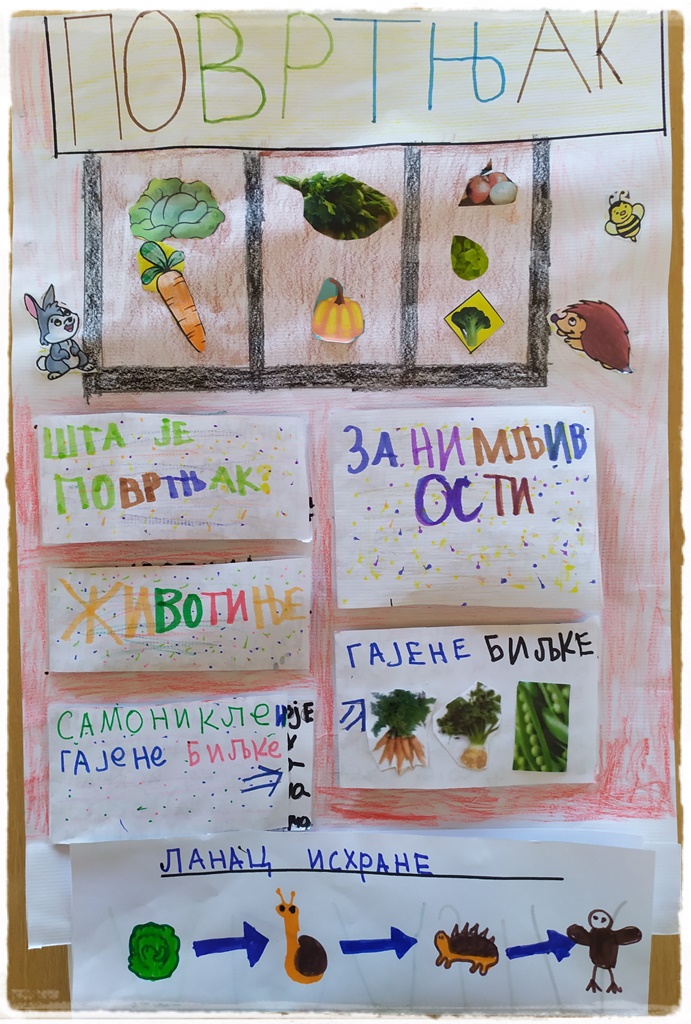 ПОВРТЊАК
ШТА ЈЕ
ПОВРТЊАК?
ЗАНИМЉИВ
ОСТИ
ЖИВОТИЊЕ
ГАЈЕНЕ БИЉКЕ
САМОНИКЛЕ
ГАЈЕНЕ БИЉКЕ
ЛАНАЦ ИСХРАНЕ